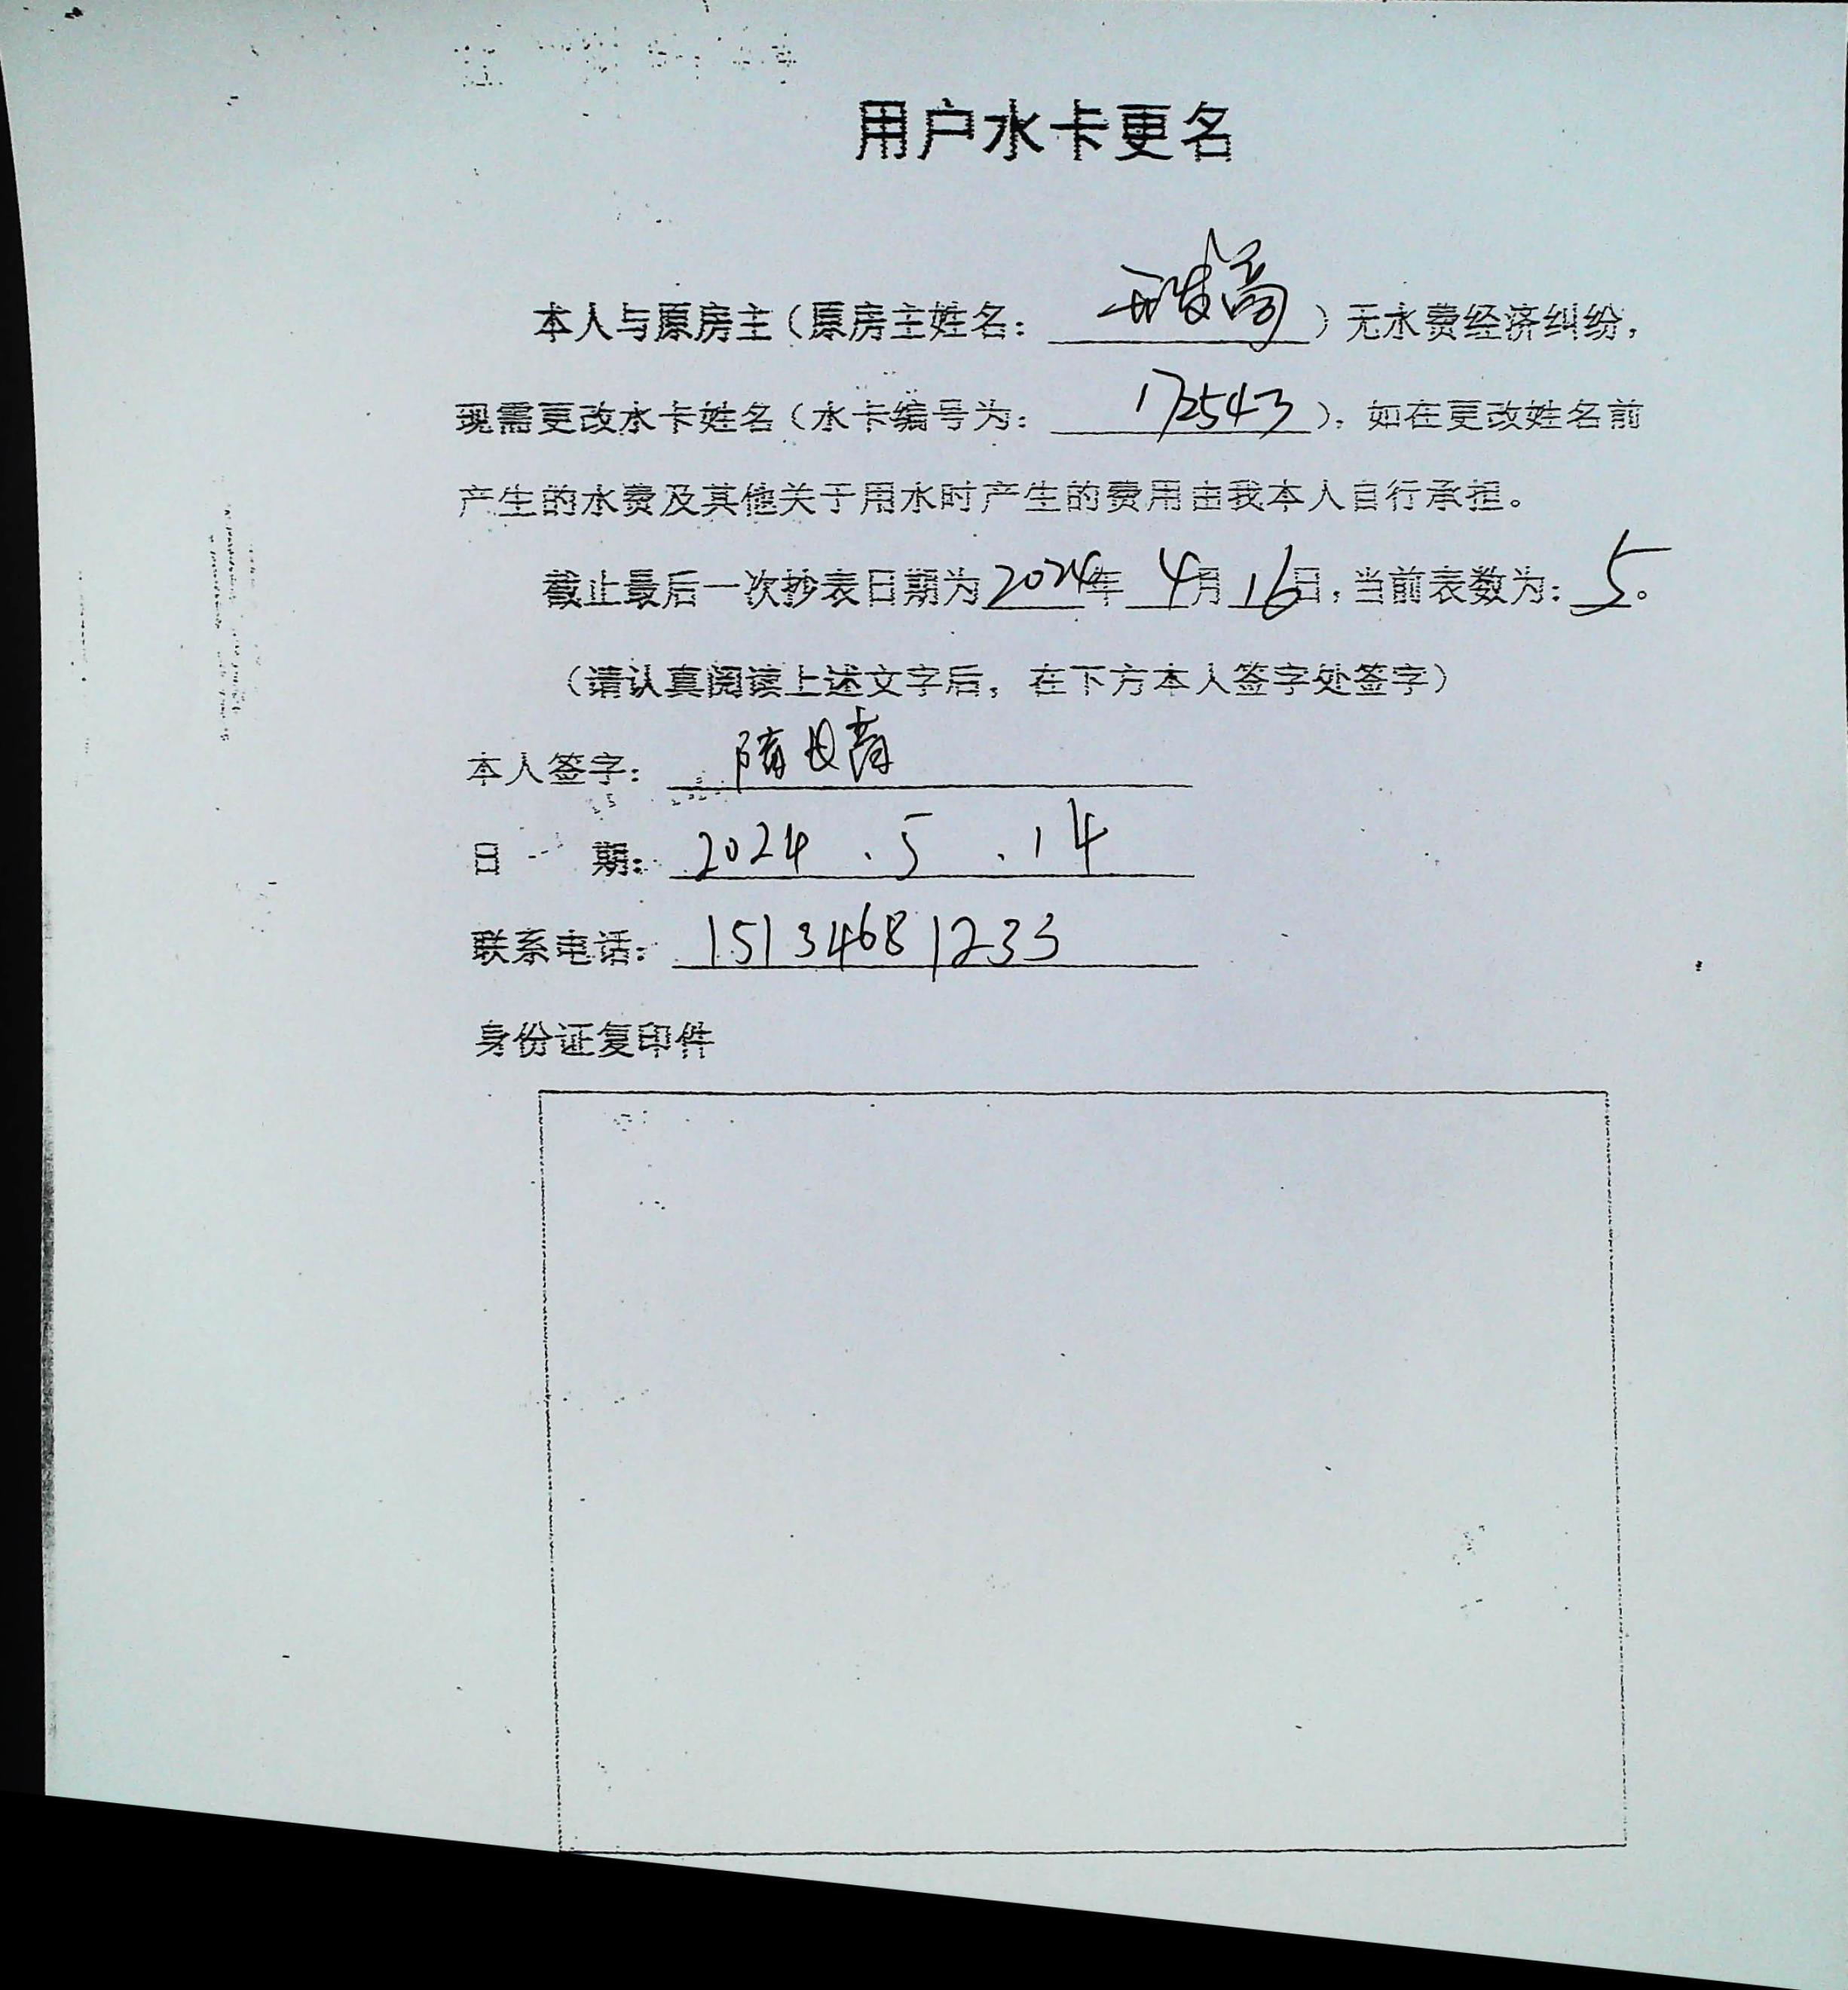 用户水卡更名
本人与原房主(原房主姓名: )无水费经济纠纷,
现需更改水卡姓名(水卡编号为: 172543 ), 如在更改姓名前
产生的水费及其他关于用水时产生的费用由我本人自行承担。
截止最后一次抄表日期为2024年 4月 16日, 当前表数为: 5。
(请认真阅读上述文字后, 在下方本人签字处签字)
本人签字:
日 期: 2024 . 5 . 14
联系电话: 15134681233
身份证复印件